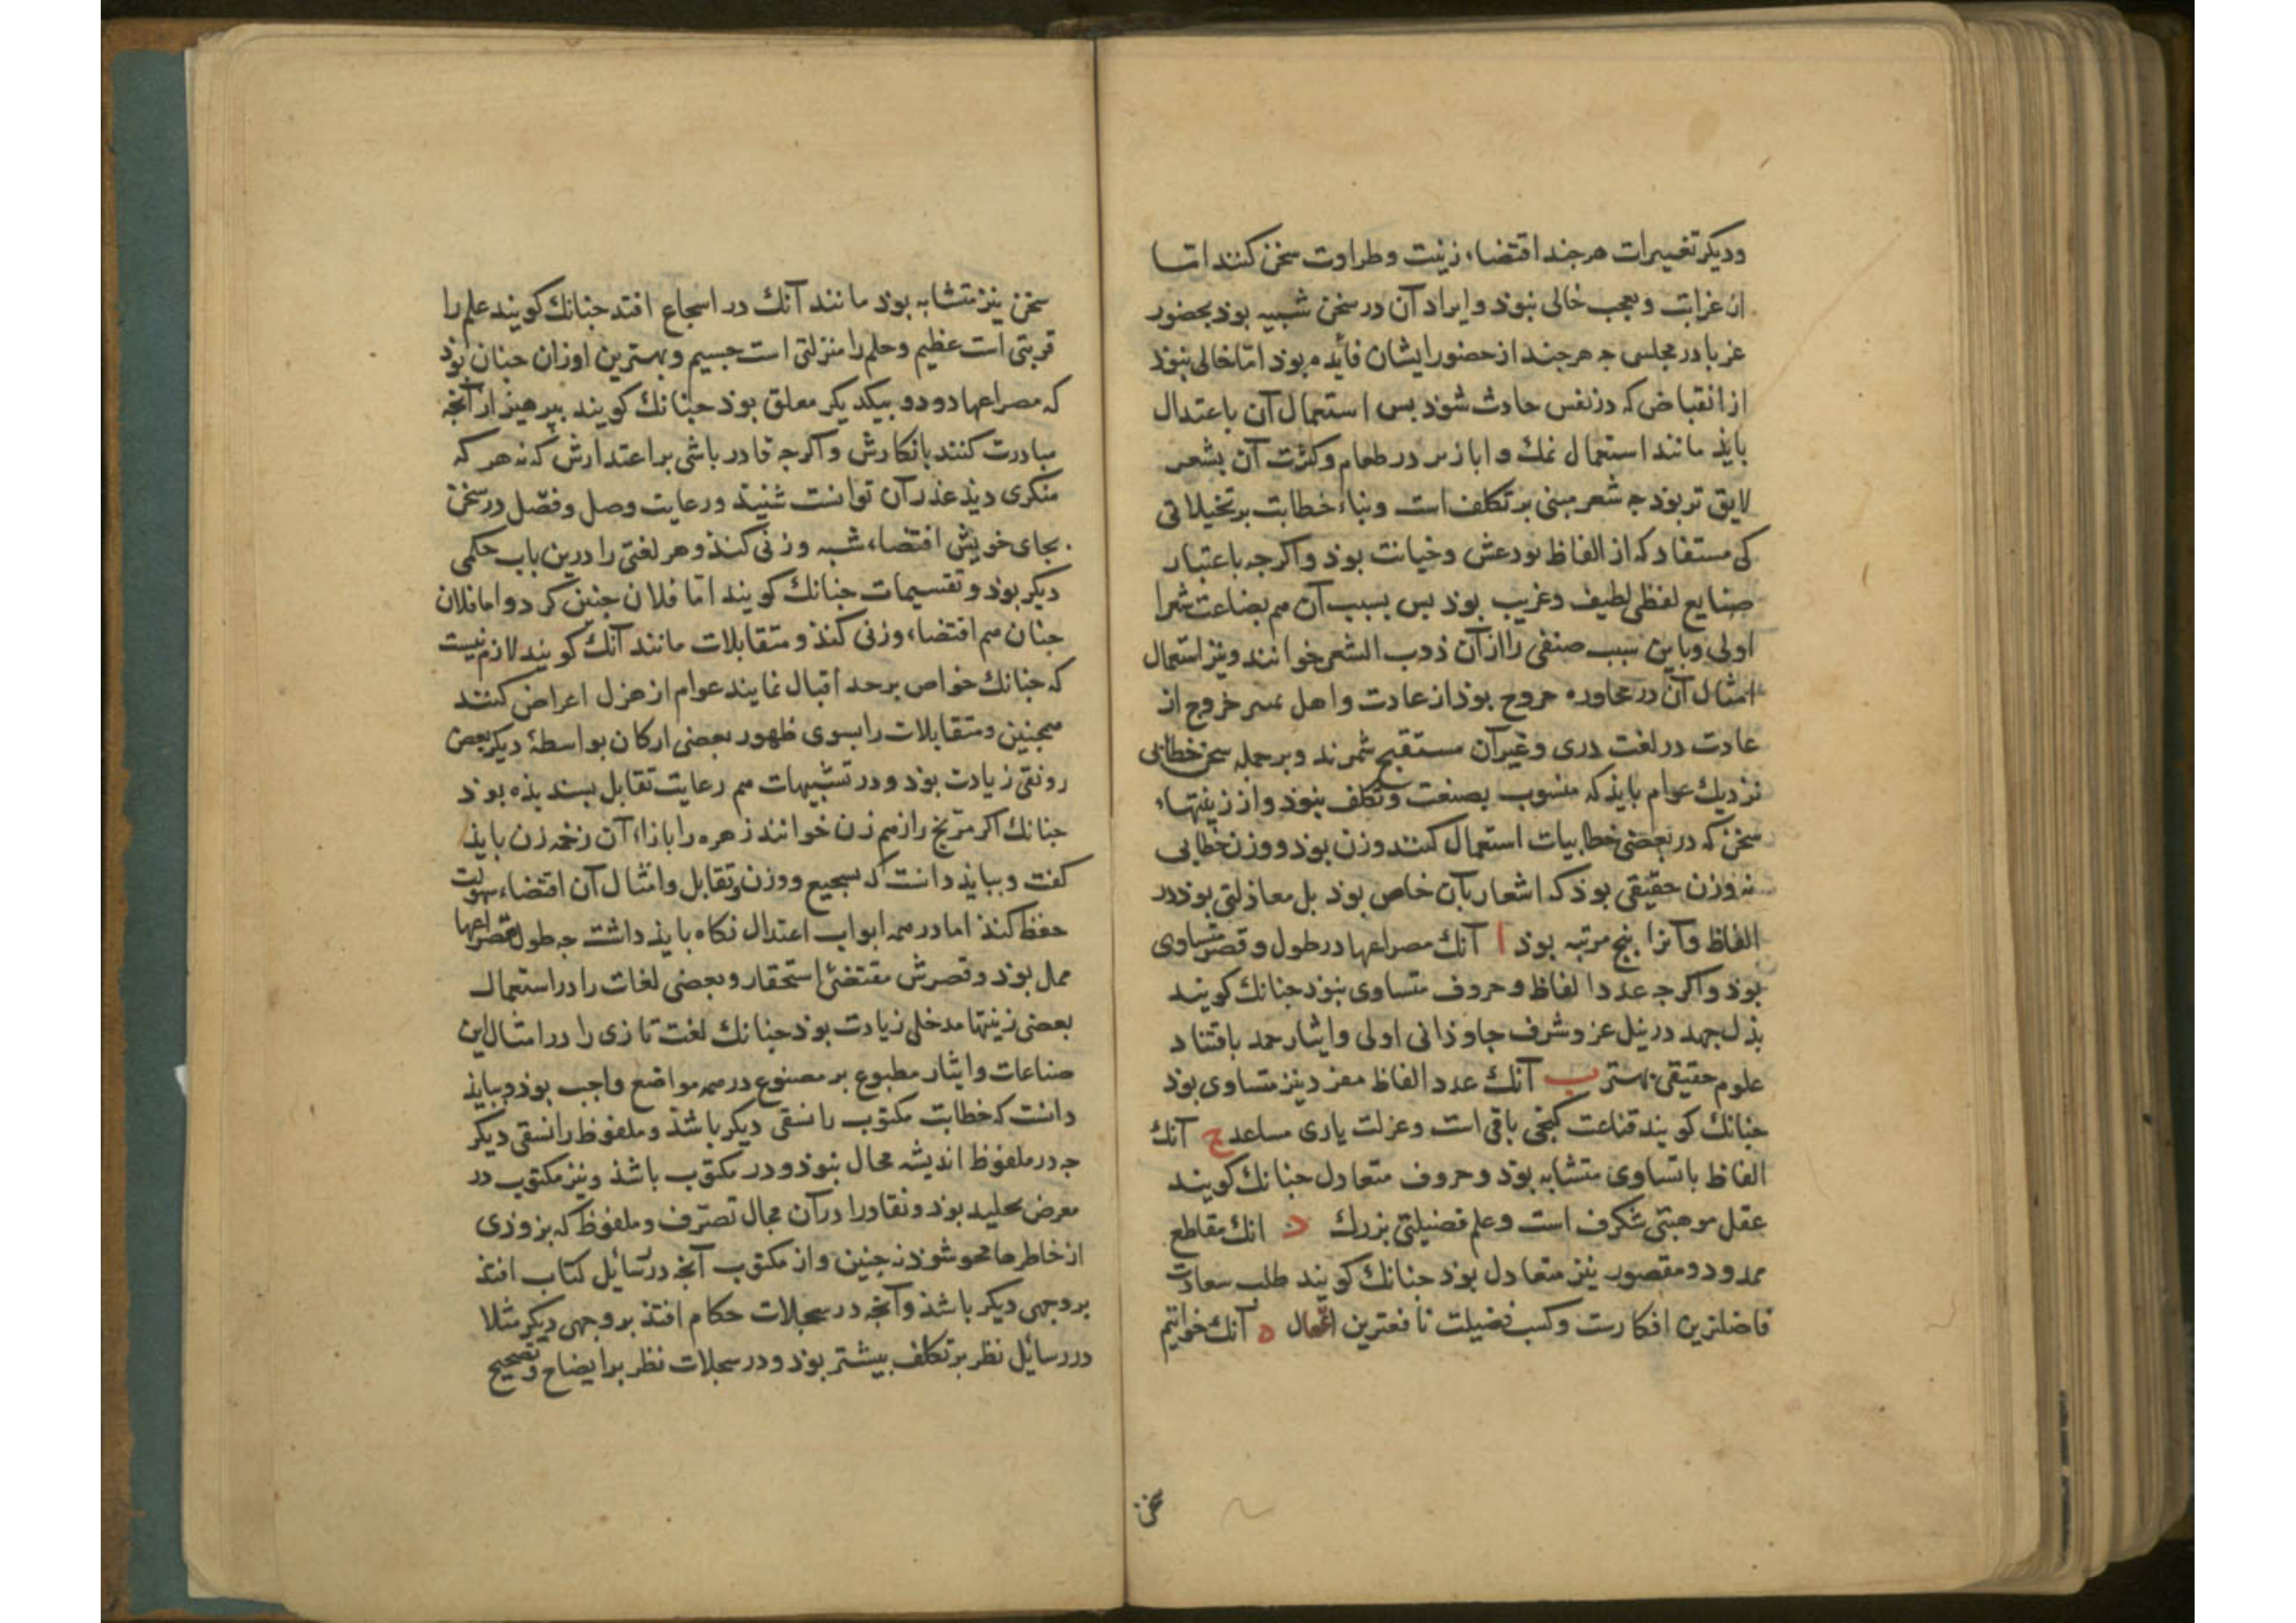 ودیکر تغییرات هرجند اقتضاء زینت وطراوت سخن کنند اما
از غرابت وتعجب خالی نبوذ وایراد آن در سخن شبیه بوذ بحضور
غربا در مجلسی جه هرجند از حضور ایشان فائده بوذ اما خالی نبوذ
از انقباضی که در نفس حادث شوذ بس استعمال آن باعتدال
بایذ مانند استعمال نمك و ابازیر در طعام وکثرت آن بشعر
لایق تر بوذ جه شعر مبنی بر تکلف است وبناء خطابت بر تخیلاتی
کی مستفاد که از الفاظ بود غش وخیانت بوذ واکرجه باعتبار
صنایع لفظی لطیف وغریب بوذ بس بسبب آن هم بصناعت شعرا
اولی وباین سبب صنفی را از آن ذوب الشعر خوانند ونیز استعمال
امثال آن در محاوره خروج بوذ از عادت واهل تمیز خروج از
عادت در لغت دری وغیر آن مستقبح شمرند وبر جمله سخن خطابی
نزدیك عوام بایذ که منسوب بصنعت وتکلف نبوذ واز زینتهاء
سخن که در بعضی خطابیات استعمال کنند وزن بوذ ووزن خطابی
نه وزن حقیقی بوذ که اشعار بآن خاص بوذ بل معادلتی بوذ در
الفاظ وآنرا بنج مرتبه بوذ ا آنك مصراعها در طول وقصر متساوی
بوذ واکرجه عدد الفاظ وحروف متساوی نبوذ جنانك کویند
بذل جهد در نیل عز وشرف جاوذانی اولی وایثار حمد باقتناء
علوم حقیقی بهتر ب آنك عدد الفاظ مفرد نیز متساوی بوذ
جنانك کویند قناعت کنجی باقی است وعزلت یاری مساعد ج آنك
الفاظ با تساوی متشابه بوذ وحروف متعادل جنانك کویند
عقل موهبتی شکرف است وعلم فضیلتی بزرك د انك مقاطع
ممدود ومقصور نیز متعادل بوذ جنانك کویند طلب سعادت
فاضلترین افکارست وکسب فضیلت نافعترین اعمال ه آنك خواتیم
سخن
سخن نیز متشابه بوذ مانند آنك در اسجاع افتد جنانك کویند علم را
قربتی است عظیم وحلم را منزلتی است جسیم وبهترین اوزان جنان بوذ
که مصراعها دو دو بیکدیکر معلق بوذ جنانك کویند ببرهیز از آنجه
مبادرت کنند بانکارش واکرجه قادر باشی بر اعتذارش که نه هر که
منکری دیذ عذر آن توانست شنیذ ورعایت وصل وفصل در سخن
بجای خویش اقتضاء شبه وزنی کنذ وهر لغتی را درین باب حکمی
دیکر بوذ وتقسیمات جنانك کویند اما فلان جنین کرد واما فلان
جنان هم اقتضاء وزنی کنذ ومتقابلات مانند آنك کویند لازم نیست
که جنانك خواص بر جد اقبال نمایند عوام از هزل اعراض کنند
همجنین ومتقابلات را بسوی ظهور بعضی ارکان بواسطهٔ دیکر بعض
رونقی زیادت بوذ ودر تشبیهات هم رعایت تقابل بسندیذه بوذ
جنانك اکر مریخ را زخم زن خوانند زهره را بازاء آن زخمه زن بایذ
کفت وببایذ دانست که تسجیع ووزن وتقابل وامثال آن اقتضاء سهولت
حفظ کنذ اما در همه ابواب اعتدال نکاه بایذ داشت جه طول مصراعها
ممل بوذ وقصرش مقتضئ استحقار وبعضی لغات را در استعمال
بعضی زینتها مدخلی زیادت بوذ جنانك لغت تازی را در امثال این
صناعات وایثار مطبوع بر مصنوع در همه مواضع واجب بوذ وببایذ
دانست که خطابت مکتوب را نسقی دیکر باشذ وملفوظ را نسقی دیکر
جه در ملفوظ اندیشه مجال نبوذ ودر مکتوب باشذ ونیز مکتوب در
معرض تخلید بوذ ونقاد را در آن مجال تصرف وملفوظ که بزوذی
از خاطرها محو شوذ نه جنین واز مکتوب آنجه در رسائل کتاب افتذ
بر وجهی دیکر باشذ وآنجه در سجلات حکام افتذ بر وجهی دیکر مثلا
در رسائل نظر بر تکلف بیشتر بوذ ودر سجلات نظر بر ایضاح وتصحیح